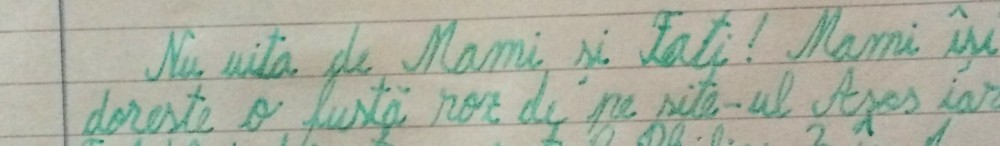 Nu uita de Mami și Tati! Mami își
dorește o fustă roz de pe site-ul iar